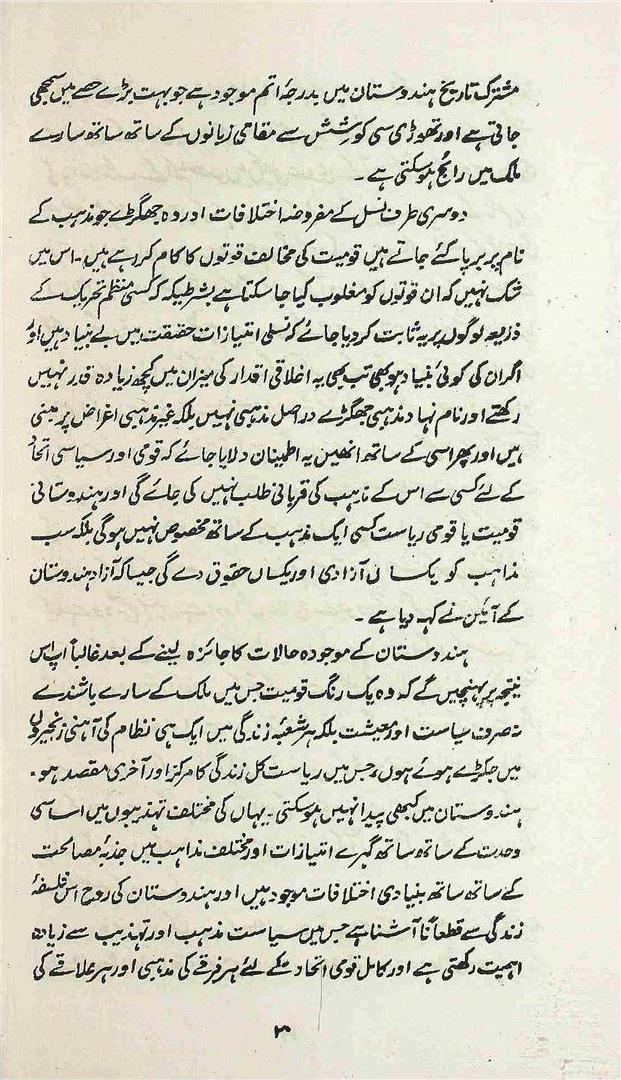 مشترک تاریخ ہندوستان میں بدرجۂ اتم موجود ہے جو بہت بڑے حصے میں سمجھی
جاتی ہے اور تھوڑی سی کوشش سے مقامی زبانوں کے ساتھ ساتھ سارے
ملک میں رائج ہو سکتی ہے ۔
دوسری طرف نسل کے مفروضہ اختلافات اور وہ جھگڑے جو مذہب کے
نام پر برپا کئے جاتے ہیں قومیت کی مخالف قوتوں کا کام کر رہے ہیں ۔ اس میں
شک نہیں کہ ان قوتوں کو مغلوب کیا جا سکتا ہے بشرطیکہ کسی منظم تحریک کے
ذریعہ لوگوں پر یہ ثابت کر دیا جائے کہ نسلی امتیازات حقیقت میں بے بنیاد ہیں اور
اگر ان کی کوئی بنیاد ہو بھی تب بھی یہ اخلاقی اقدار کی میزان میں کچھ زیادہ قدر نہیں
رکھتے اور نام نہاد مذہبی جھگڑے دراصل مذہبی نہیں بلکہ غیر مذہبی اغراض پر مبنی
ہیں اور پھر اسی کے ساتھ انھیں یہ اطمینان دلایا جائے کہ قومی اور سیاسی اتحاد
کے لئے کسی سے اس کے مذہب کی قربانی طلب نہیں کی جائے گی اور ہندوستانی
قومیت یا قومی ریاست کسی ایک مذہب کے ساتھ مخصوص نہیں ہوگی بلکہ سب
مذاہب کو یکساں آزادی اور یکساں حقوق دے گی جیسا کہ آزاد ہندوستان
کے آئین نے کہہ دیا ہے ۔
ہندوستان کے موجودہ حالات کا جائزہ لینے کے بعد غالباً آپ اس
نتیجہ پر پہنچیں گے کہ وہ یک رنگ قومیت جس میں ملک کے سارے باشندے
نہ صرف سیاست اور معیشت بلکہ ہر شعبۂ زندگی میں ایک ہی نظام کی آہنی زنجیروں
میں جکڑے ہوئے ہوں، جس میں ریاست کل زندگی کا مرکز اور آخری مقصد ہو ۔
ہندوستان میں کبھی پیدا نہیں ہو سکتی ۔ یہاں کی مختلف تہذیبوں میں اساسی
وحدت کے ساتھ ساتھ گہرے امتیازات اور مختلف مذاہب میں جذبۂ مصالحت
کے ساتھ ساتھ بنیادی اختلافات موجود ہیں اور ہندوستان کی روح اس فلسفۂ
زندگی سے قطعاً ناآشنا ہے جس میں سیاست مذہب اور تہذیب سے زیادہ
اہمیت رکھتی ہے اور کامل قومی اتحاد کے لئے ہر فرقے کی مذہبی اور ہر علاقے کی